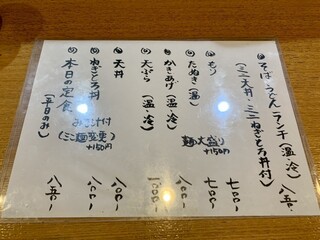 そば・うどん ランチ(温・冷) 八五〇-
(ミニ天丼・ミニねぎとろ丼付)
もり 七〇〇-
たぬき(温) 七〇〇-
麺大盛り +150円
かきあげ(温・冷) 八〇〇-
天ぷら(温・冷) 1000-
天丼 八〇〇-
ねぎとろ丼 八〇〇-
みそ汁付
(ミニ麺変更) +150円
本日の定食 八五〇-
(平日のみ)